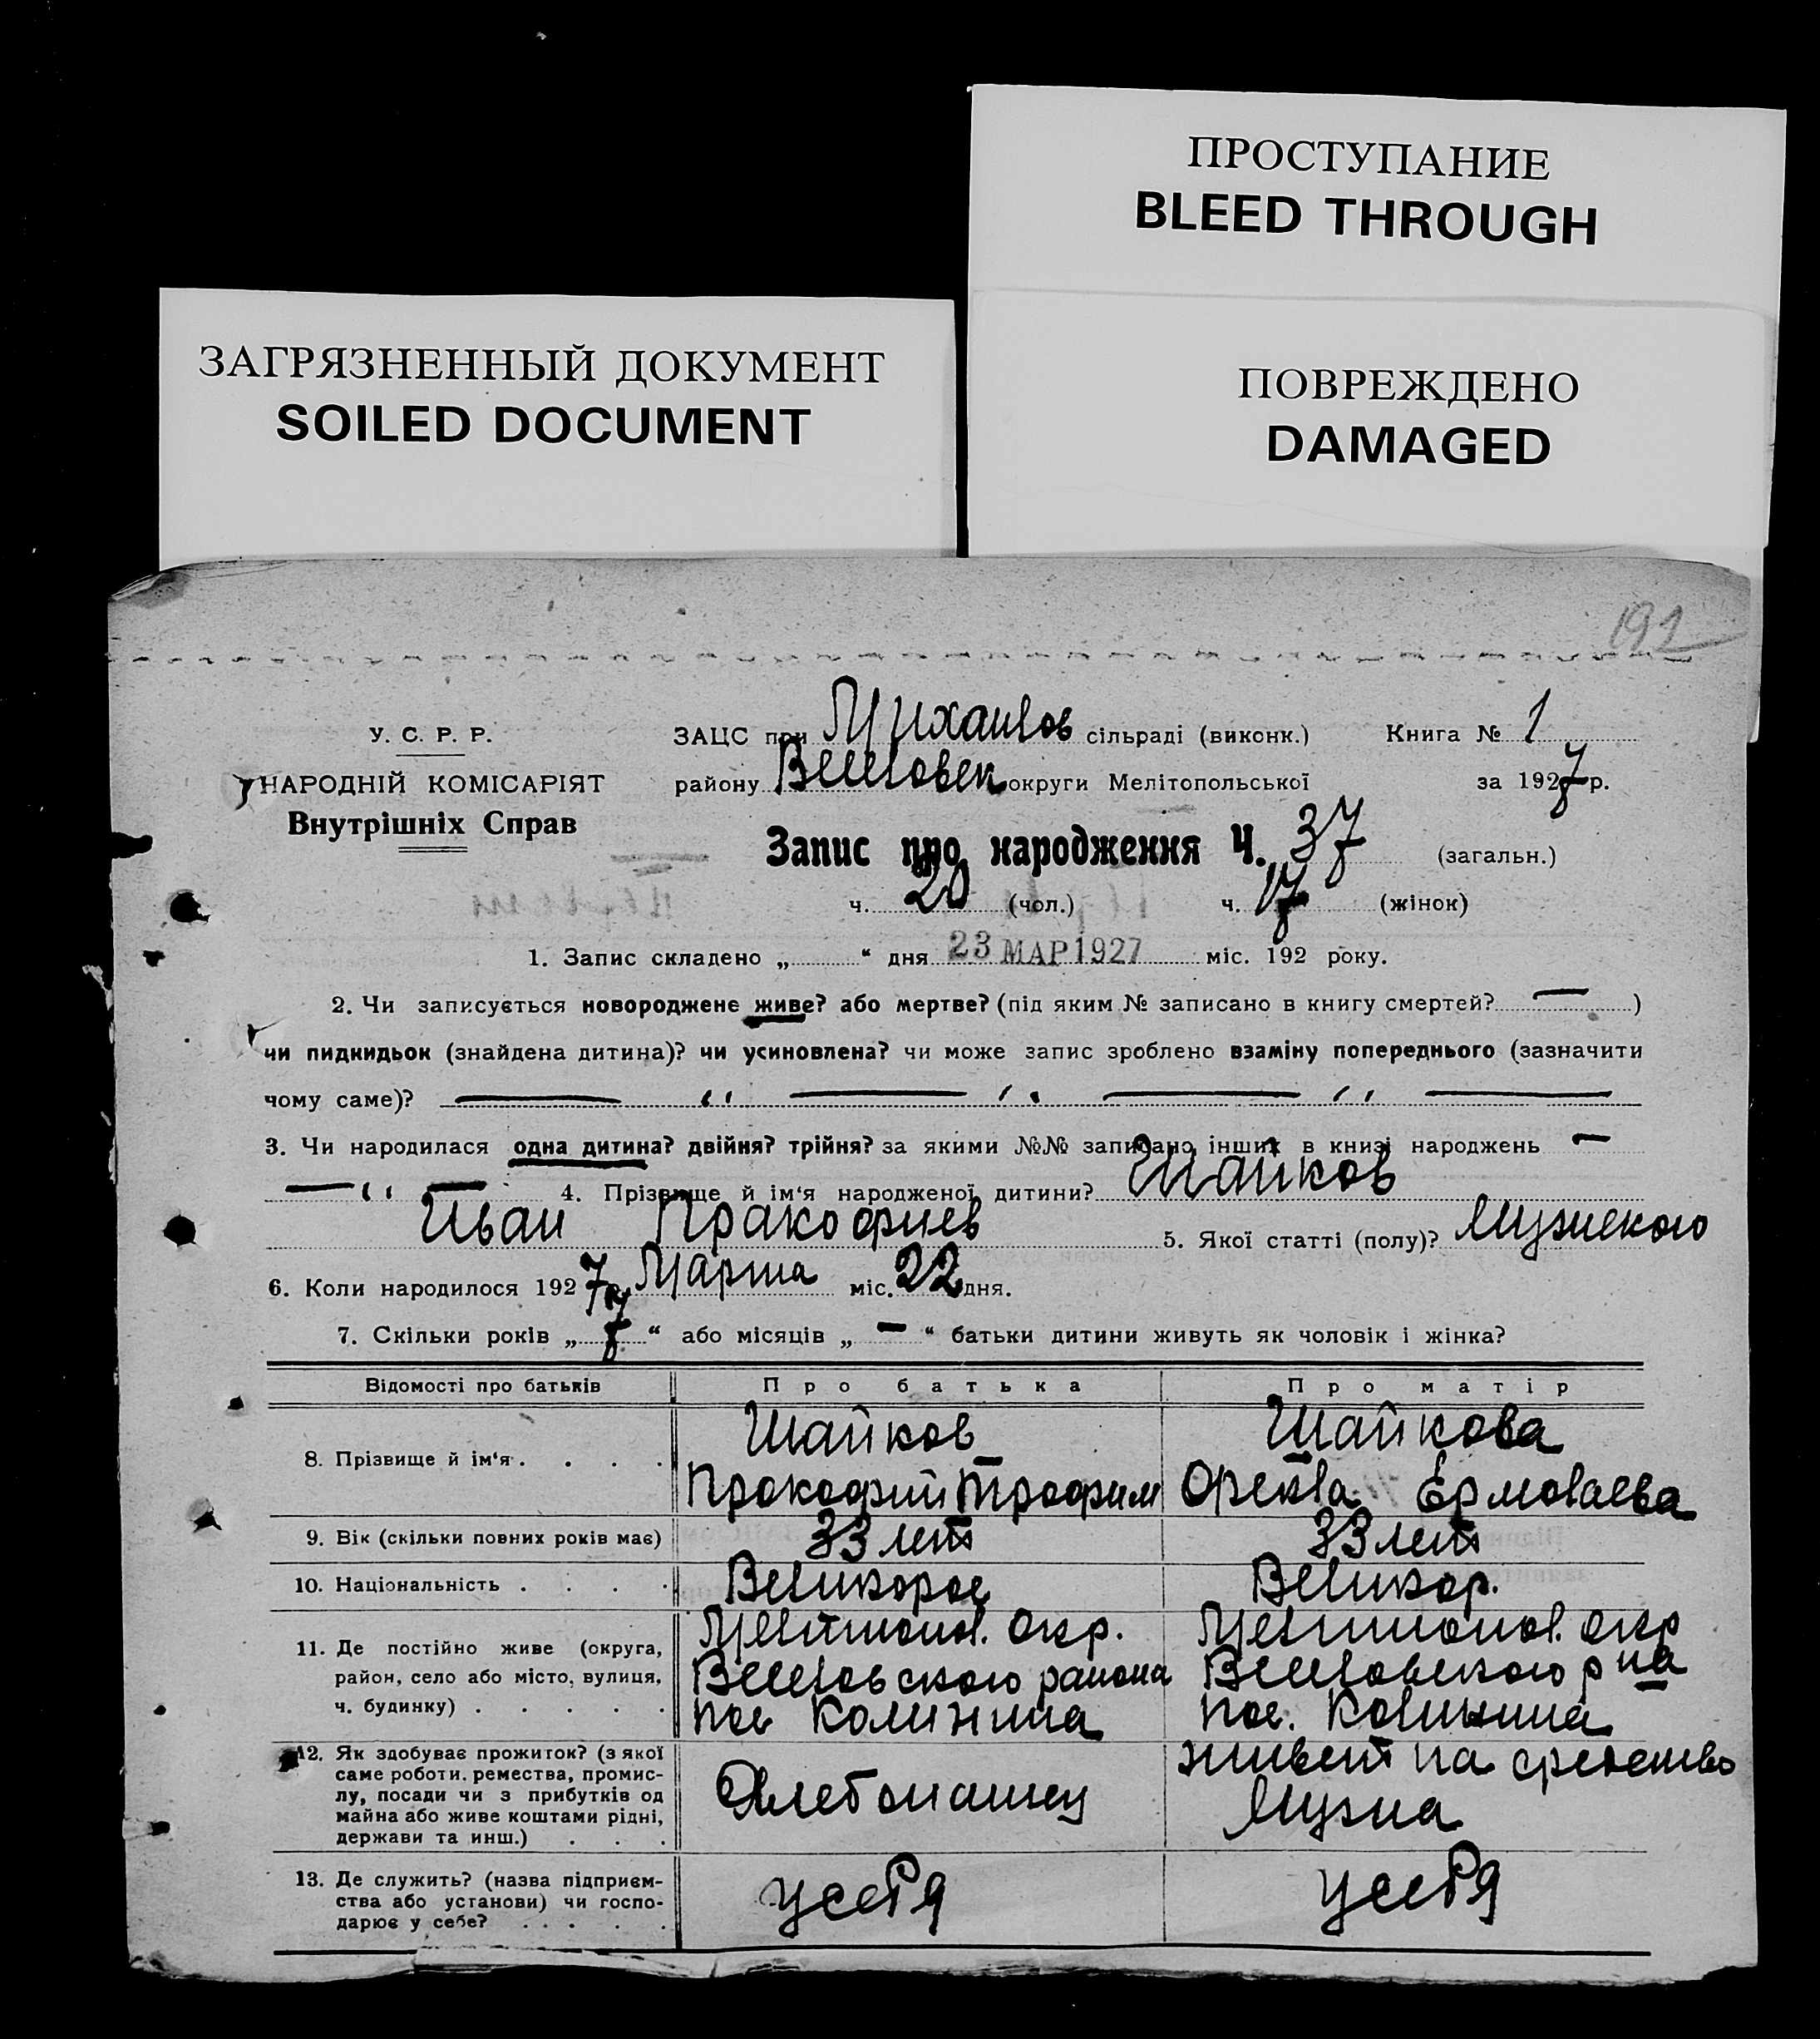 ПРОСТУПАНИЕ
BLEED THROUGH
ЗАГРЯЗНЕННЫЙ ДОКУМЕНТ
SOILED DOCUMENT
ПОВРЕЖДЕНО
DAMAGED
192
У. С. Р. Р.
НАРОДНІЙ КОМІСАРІЯТ
Внутрішніх Справ
ЗАЦС при Михайлов сільраді (виконк.) Книга № 1
району Веселовск округи Мелітопольської за 1927 р.
Запис про народження Ч. 37 (загальн.)
ч. 20 (чол.) ч. 17 (жінок)
1. Запис складено „ “ дня 23 МАР 1927 міс. 192 року.
2. Чи записується новороджене живе? або мертве? (під яким № записано в книгу смертей? — )
чи пиднидьок (знайдена дитина)? чи усиновлена? чи може запис зроблено взаміну попереднього (зазначити
чому саме)? — „ — „ — „ —
3. Чи народилася одна дитина? двійня? трійня? за якими №№ записано інших в книзі народжень —
— „ — 4. Прізвище й ім‘я народженої дитини? Шайков
Иван Пракофиев 5. Якої статті (полу)? Мужского
6. Коли народилося 1927 р. Марта міс. 22 дня.
7. Скільки років „ “ або місяців „ — “ батьки дитини живуть як чоловік і жінка?
Відомості про батьків Про батька Про матір
8. Прізвище й ім‘я . . . . Шайков Шайкова
Прокофий Трофим Фекла Ермолаева
9. Вік (скільки повних років має) 33 лет 33 лет
10. Національність . . . . Великорос Великор.
11. Де постійно живе (округа, район, село або місто, вулиця, ч. будинку) . . . . . Мелитопол. Окр. Мелитопол. Окр
Веселовского района Веселовского р на
пос Калинина пос. Калинина
12. Як здобуває прожиток? (з якої саме роботи, ремества, промислу, посади чи з прибутків од майна або живе коштами рідні, держави та инш.) . . . Хлебопашец живет на средство
Мужа
13. Де служить? (назва підприємства або установи) чи господарює у себе? . . . . . У себя У себя